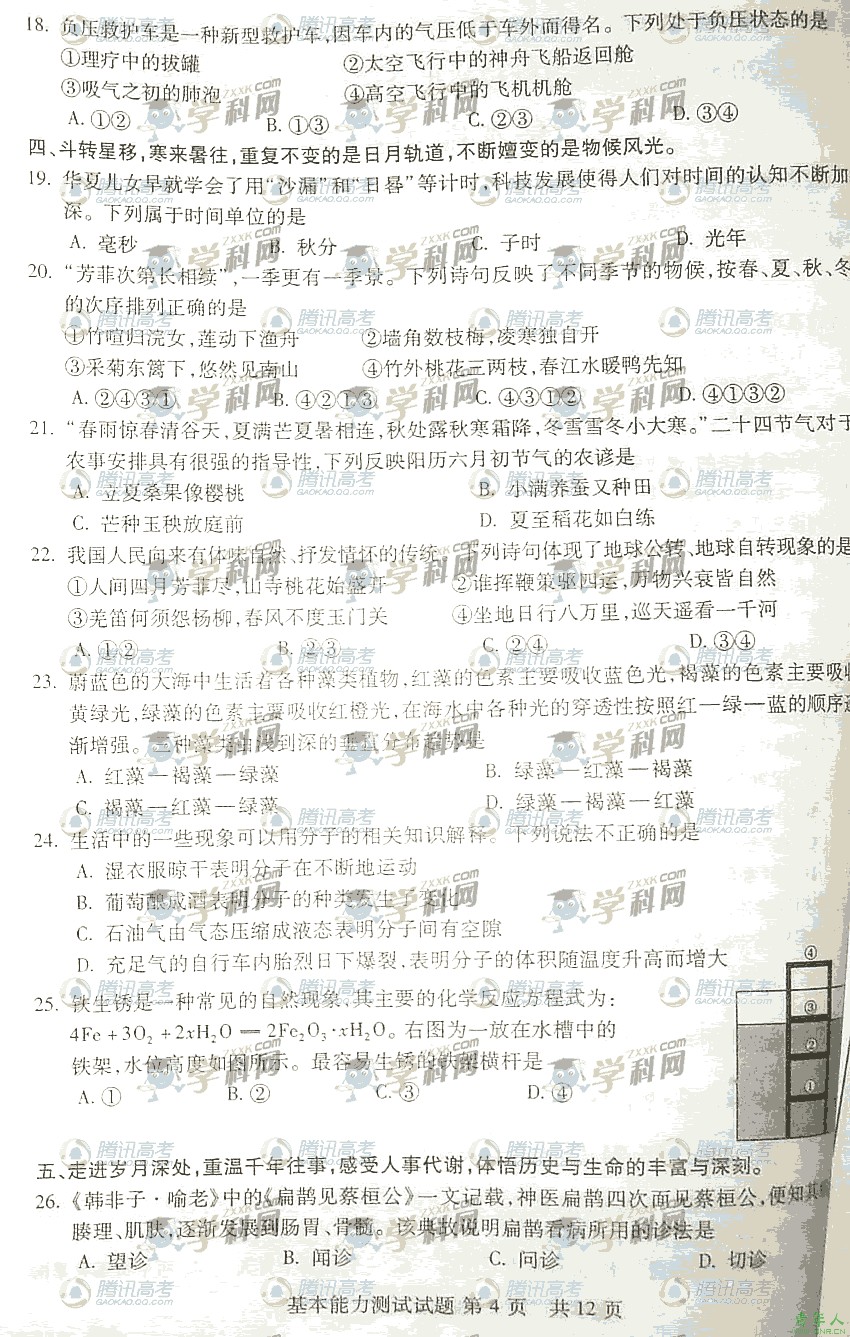 18. 负压救护车是一种新型救护车,因车内的气压低于车外而得名。下列处于负压状态的是
①理疗中的拔罐 ②太空飞行中的神舟飞船返回舱
③吸气之初的肺泡 ④高空飞行中的飞机机舱
A. ①② B. ①③ C. ②③ D. ③④
四、斗转星移,寒来暑往,重复不变的是日月轨道,不断嬗变的是物候风光。
19. 华夏儿女早就学会了用“沙漏”和“日晷”等计时,科技发展使得人们对时间的认知不断加
深。下列属于时间单位的是
A. 毫秒 B. 秋分 C. 子时 D. 光年
20. “芳菲次第长相续”,一季更有一季景。下列诗句反映了不同季节的物候,按春、夏、秋、冬
的次序排列正确的是
①竹喧归浣女,莲动下渔舟 ②墙角数枝梅,凌寒独自开
③采菊东篱下,悠然见南山 ④竹外桃花三两枝,春江水暖鸭先知
A. ②④③① B. ④②①③ C. ④③①② D. ④①③②
21. “春雨惊春清谷天,夏满芒夏暑相连,秋处露秋寒霜降,冬雪雪冬小大寒。”二十四节气对于
农事安排具有很强的指导性,下列反映阳历六月初节气的农谚是
A. 立夏桑果像樱桃 B. 小满养蚕又种田
C. 芒种玉秧放庭前 D. 夏至稻花如白练
22. 我国人民向来有体味自然、抒发情怀的传统。下列诗句体现了地球公转、地球自转现象的是
①人间四月芳菲尽,山寺桃花始盛开 ②谁挥鞭策驱四运,万物兴衰皆自然
③羌笛何须怨杨柳,春风不度玉门关 ④坐地日行八万里,巡天遥看一千河
A. ①② B. ②③ C. ②④ D. ③④
23. 蔚蓝色的大海中生活着各种藻类植物,红藻的色素主要吸收蓝色光,褐藻的色素主要吸收
黄绿光,绿藻的色素主要吸收红橙光,在海水中各种光的穿透性按照红—绿—蓝的顺序逐
渐增强。三种藻类由浅到深的垂直分布趋势是
A. 红藻—褐藻—绿藻 B. 绿藻—褐藻—红藻
C. 褐藻—红藻—绿藻 D. 绿藻—红藻—褐藻
24. 生活中的一些现象可以用分子的相关知识解释。下列说法不正确的是
A. 湿衣服晾干表明分子在不断地运动
B. 葡萄酿成酒表明分子的种类发生了变化
C. 石油气由气态压缩成液态表明分子间有空隙
D. 充足气的自行车内胎烈日下爆裂,表明分子的体积随温度升高而增大
25. 铁生锈是一种常见的自然现象,其主要的化学反应方程式为:
4Fe+3O₂+2xH₂O═2Fe₂O₃·xH₂O。右图为一放在水槽中的
铁架,水位高度如图所示。最容易生锈的铁架横杆是
A. ① B. ② C. ③ D. ④
④
③
②
①
五、走进岁月深处,重温千年往事,感受人事代谢,体悟历史与生命的丰富与深刻。
26. 《韩非子·喻老》中的《扁鹊见蔡桓公》一文记载,神医扁鹊四次面见蔡桓公,便知其病
腠理、肌肤,逐渐发展到肠胃、骨髓。该典故说明扁鹊看病所用的诊法是
A. 望诊 B. 闻诊 C. 问诊 D. 切诊
基本能力测试试题 第 4 页 共 12 页